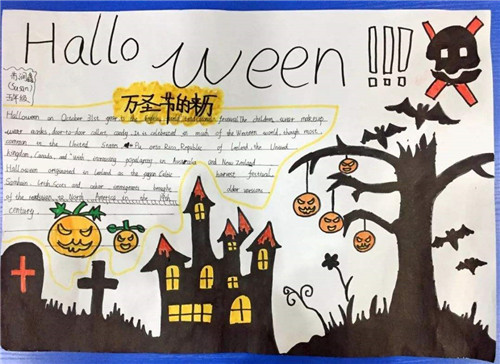 Hallo ween !!!
(Susan)
五年级
万圣节的来历
Halloween on October 31st
The children wear make-up
door-to-door collect candy. It is celebrated in much of the Western world, though most
common in the United States Puerto Rico, Republic of Ireland, the United
Kingdom, Canada and with increasing popularity in Australia and New Zealand
Halloween originated in Ireland as the pagan Celtic harvest festival
Samhain Irish, Scots and other immigrants brought older versions
of the tradition to North America in the 19th
century.